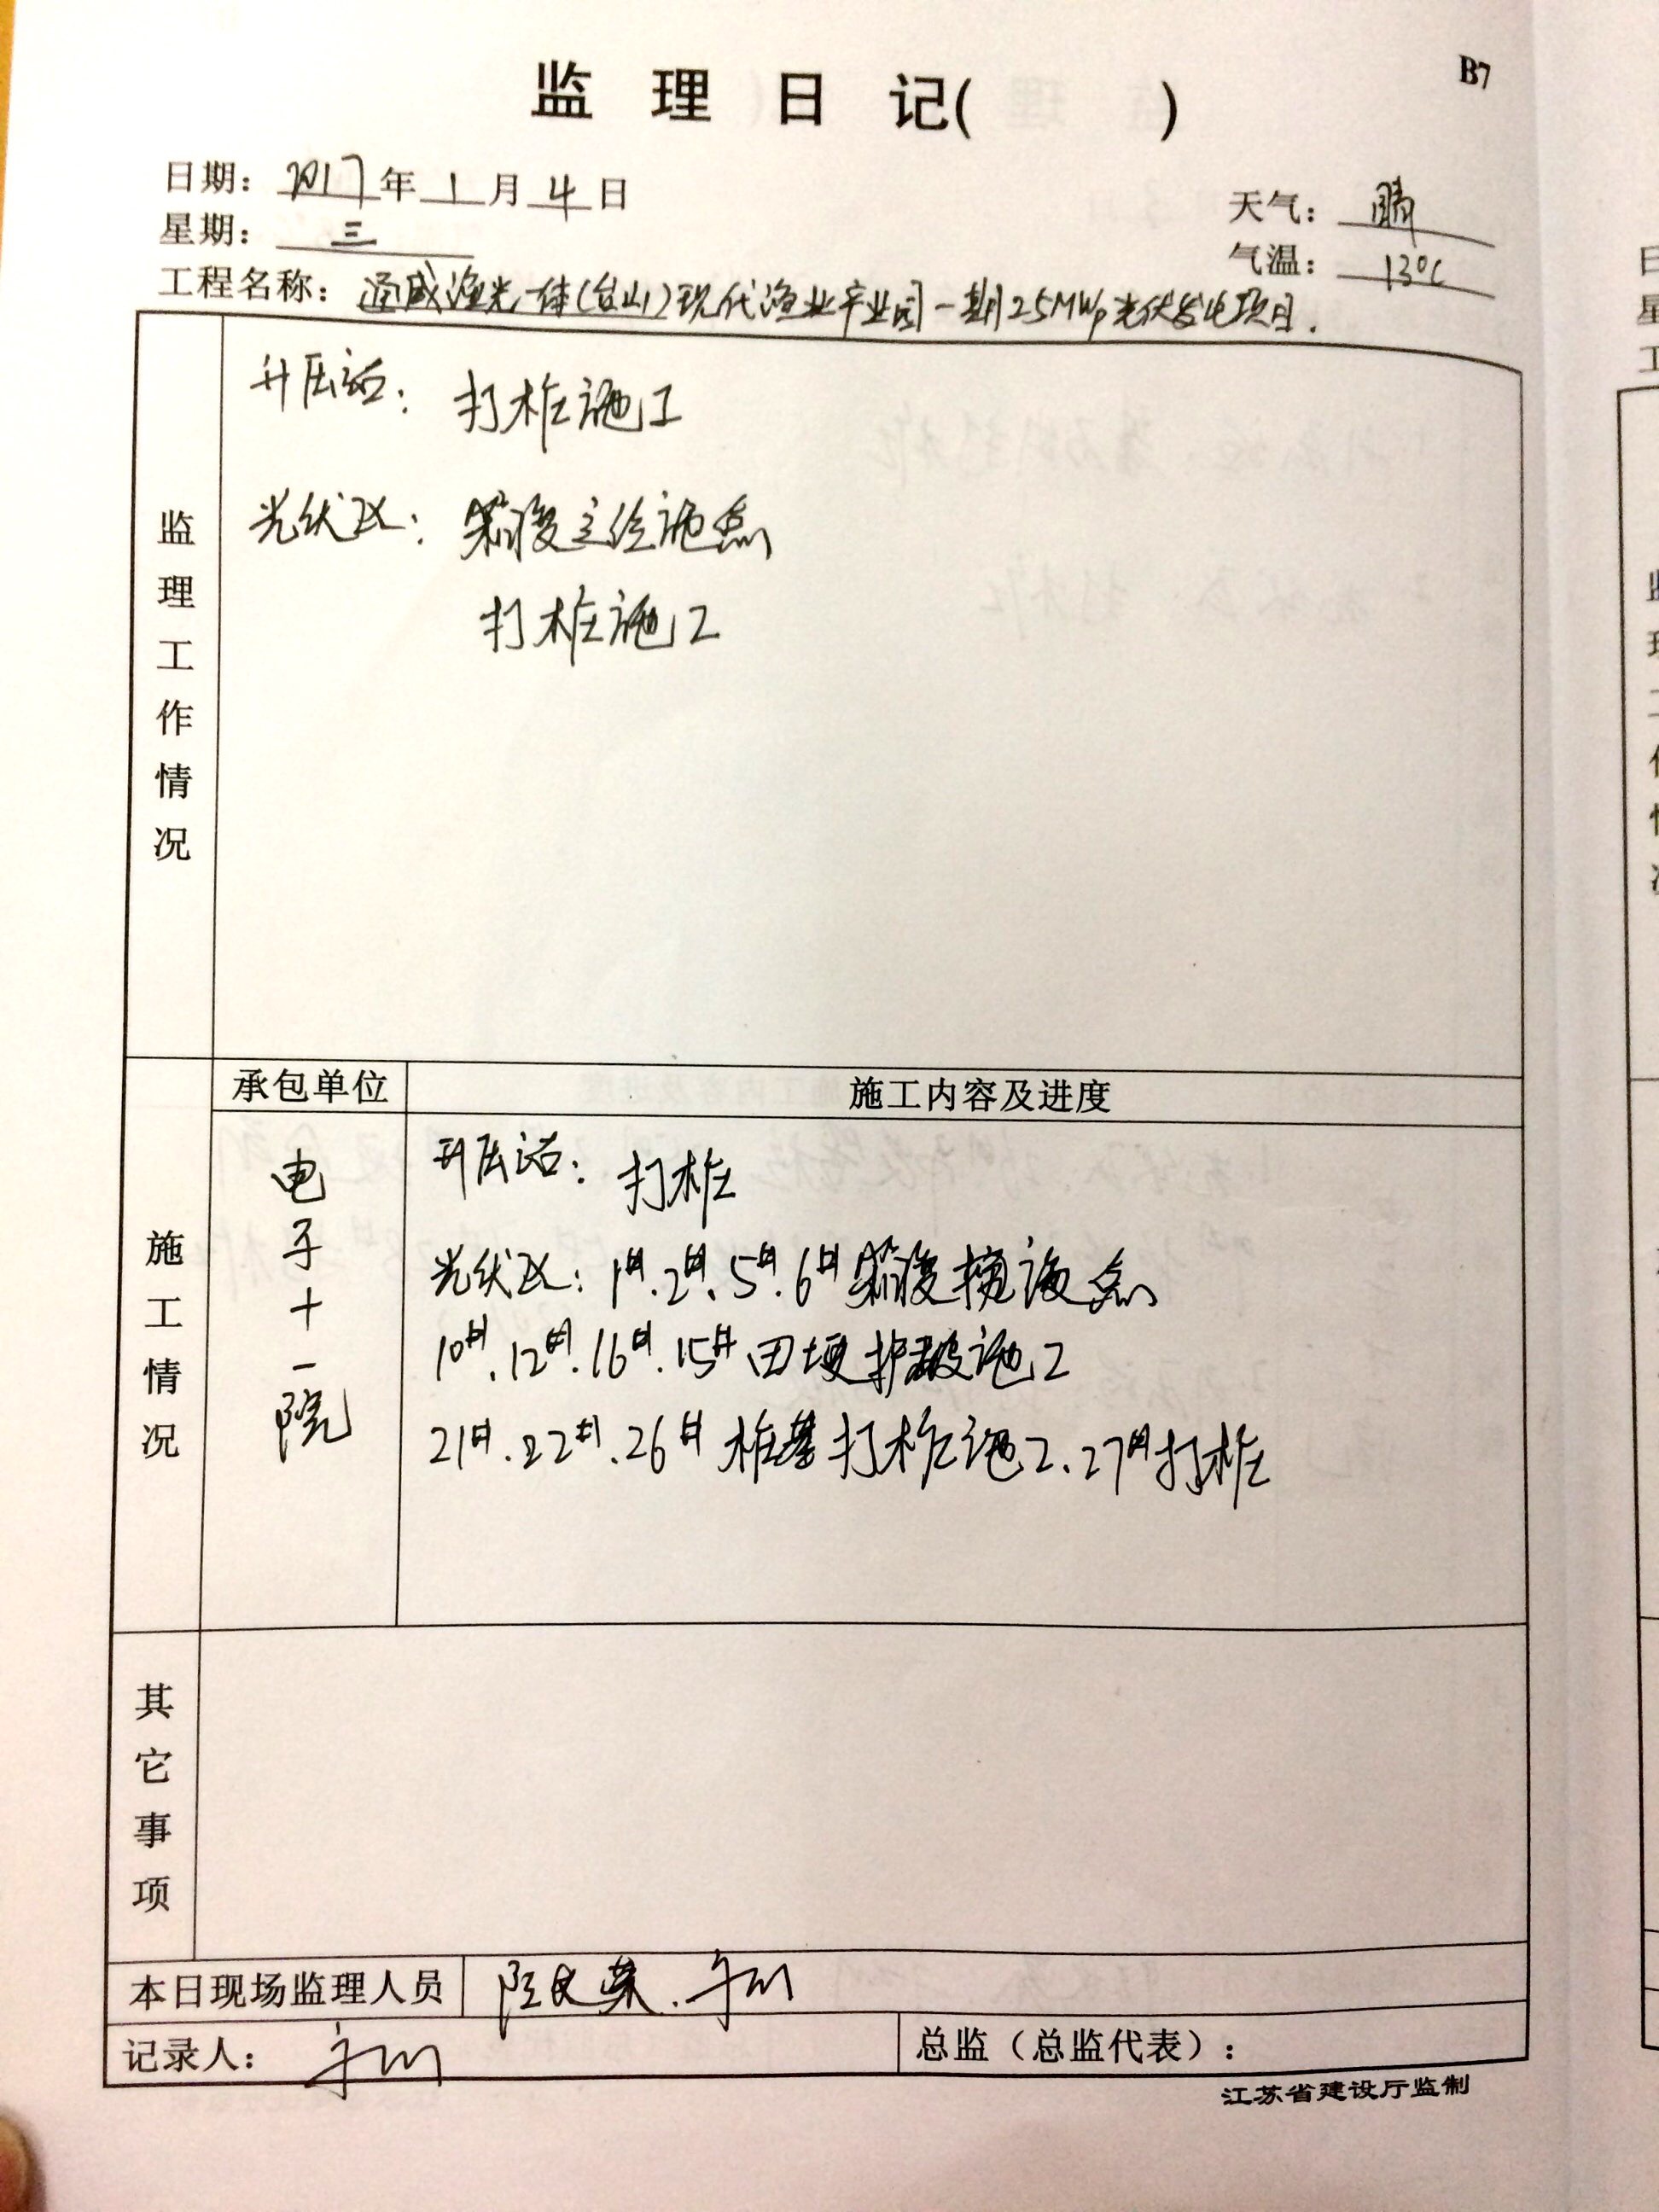 监理日记( )
B7
日期：2017年1月4日
天气：晴
星期：三
气温：13℃
工程名称：通威渔光一体(台山)现代渔业产业园一期25MWp光伏发电项目.
监理工作情况
升压站：打桩施工
光伏区：
打桩施工
承包单位
施工内容及进度
施工情况
电子十一院
升压站：打桩
光伏区：1#.2#.5#.6#
10#.12#.16#.15#田埂护坡施工
21#.22#.26#桩基打桩施工.27#打桩
其它事项
本日现场监理人员
记录人：
总监（总监代表）：
江苏省建设厅监制